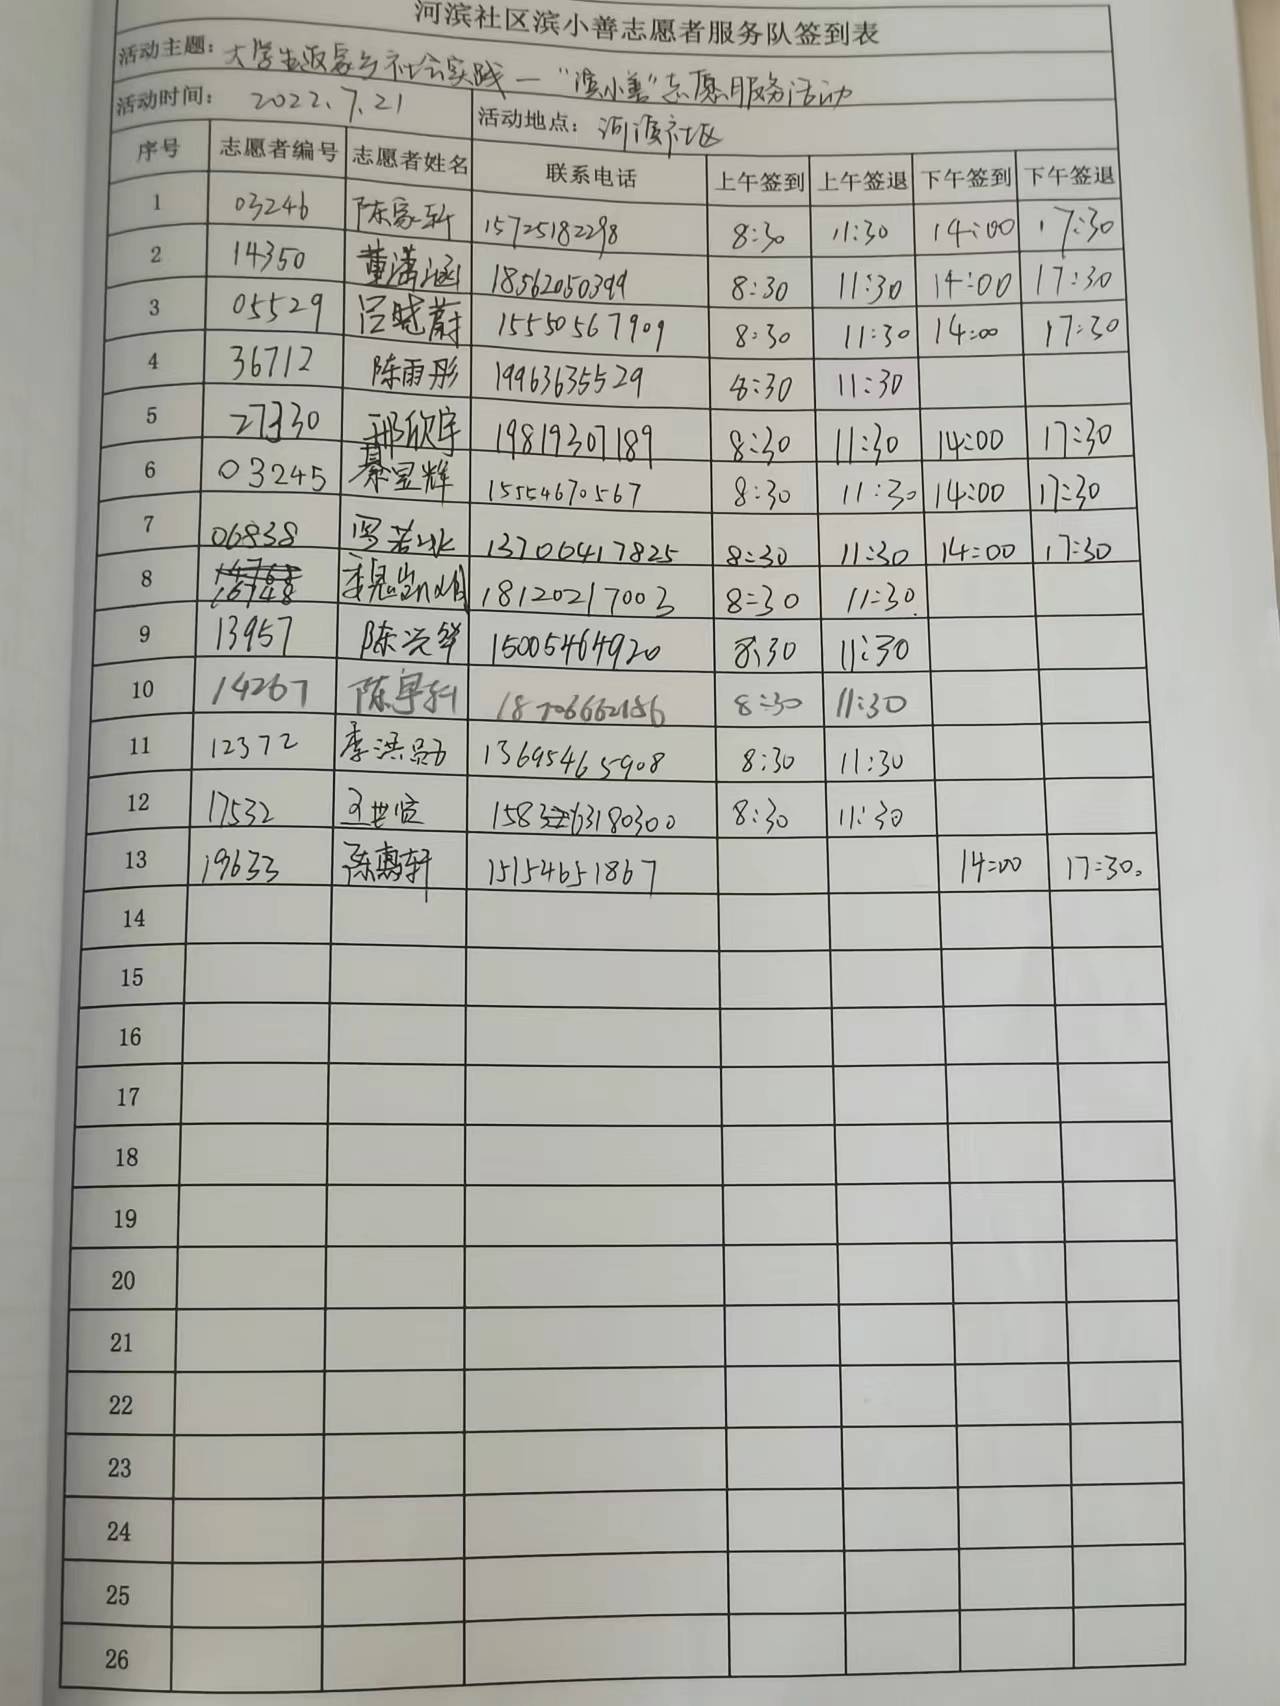 河滨社区滨小善志愿者服务队签到表
活动主题：大学生返家乡社会实践—“滨小善”志愿服务活动
活动时间：2022.7.21 活动地点：河滨社区
序号 志愿者编号 志愿者姓名 联系电话 上午签到 上午签退 下午签到 下午签退
1 03246 陈家轩 15725182298 8:30 11:30 14:00 17:30
2 14350 董潇涵 18562050399 8:30 11:30 14:00 17:30
3 05529 吕晓蔚 15550567909 8:30 11:30 14:00 17:30
4 36712 陈雨彤 19963635529 8:30 11:30
5 27330 邢欣宇 19819307189 8:30 11:30 14:00 17:30
6 03245 綦昱辉 15554670567 8:30 11:30 14:00 17:30
7 06838 冯若冰 13706417825 8:30 11:30 14:00 17:30
8 16748 18120217003 8:30 11:30
9 13957 陈兴华 15005464920 8:30 11:30
10 14267 8:30 11:30
11 12372 13695465908 8:30 11:30
12 17532 王世 8:30 11:30
13 19633 15154651867 14:00 17:30.
14
15
16
17
18
19
20
21
22
23
24
25
26